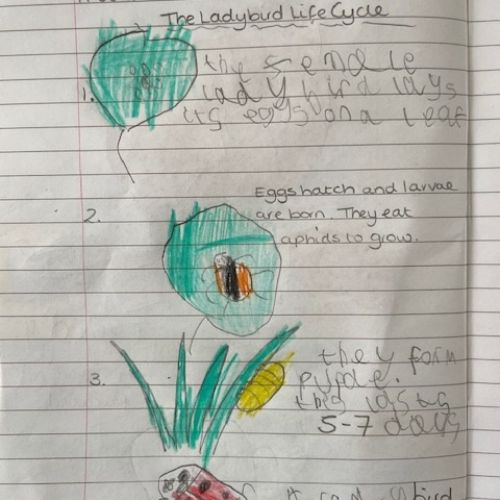 The Ladybird Life Cycle
1.
the female
ladybird lays
its eggs on a leaf
Eggs hatch and larvae
2.
are born. They eat
aphids to grow.
they form
3.
pupae.
this lasts
5-7 days